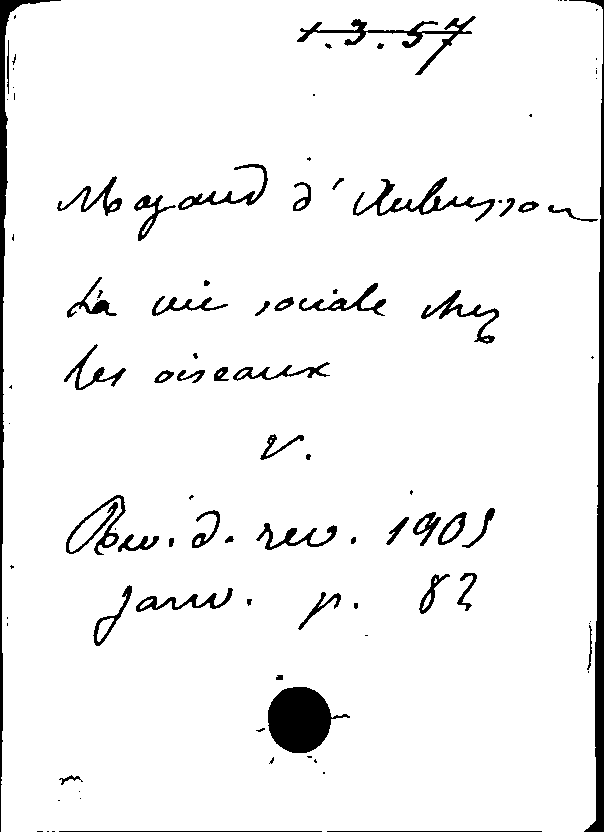 1.3.57
Magaud d'Aubusson
La vie sociale chez
les oiseaux
v.
Rev. d. rev. 1905
janv. p. 82